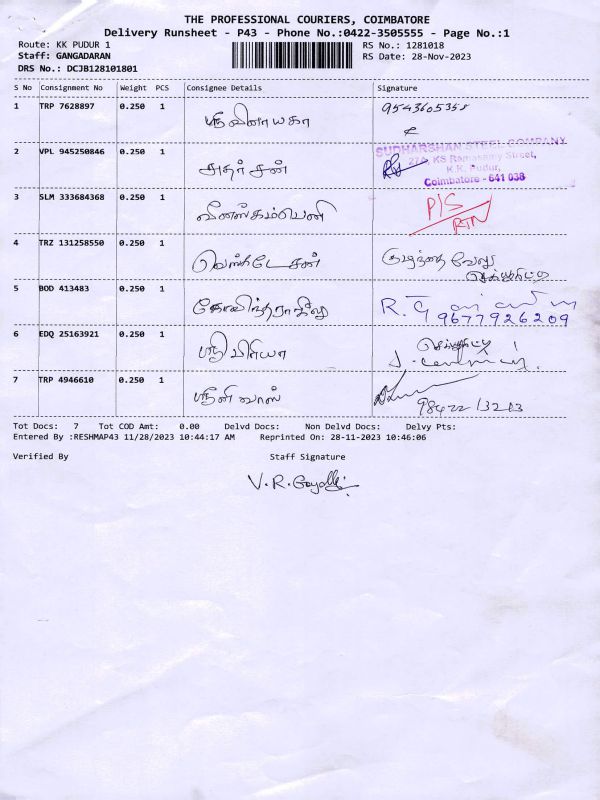 THE PROFESSIONAL COURIERS, COIMBATORE
Delivery Runsheet - P43 - Phone No.:0422-3505555 - Page No.:1
Route: KK PUDUR 1
RS No.: 1281018
Staff: GANGADARAN
RS Date: 28-Nov-2023
DRS No.: DCJB128101801
S No Consignment No Weight PCS Consignee Details Signature
1 TRP 7628897 0.250 1 ஸ்ரீ விநாயகா 9543605358
2 VPL 945250846 0.250 1 சுதர்சன்
SUDHARSHAN STEEL COMPANY
27A, KS Ramasamy Street,
K.K. Pudur,
Coimbatore - 641 038
3 SLM 333684368 0.250 1 P/S
RTN
4 TRZ 131258550 0.250 1 வெங்கடேசன் குழந்தை வேலு
செக்யூரிட்டி
5 BOD 413483 0.250 1 கோவிந்தராஜீலு
9677926209
6 EDQ 25163921 0.250 1 ஸ்ரீ பிரியா செக்யூரிட்டி
7 TRP 4946610 0.250 1 ஸ்ரீனிவாஸ்
98422 13203
Tot Docs: 7 Tot COD Amt: 0.00 Delvd Docs: Non Delvd Docs: Delvy Pts:
Entered By :RESHMAP43 11/28/2023 10:44:17 AM Reprinted On: 28-11-2023 10:46:06
Verified By Staff Signature